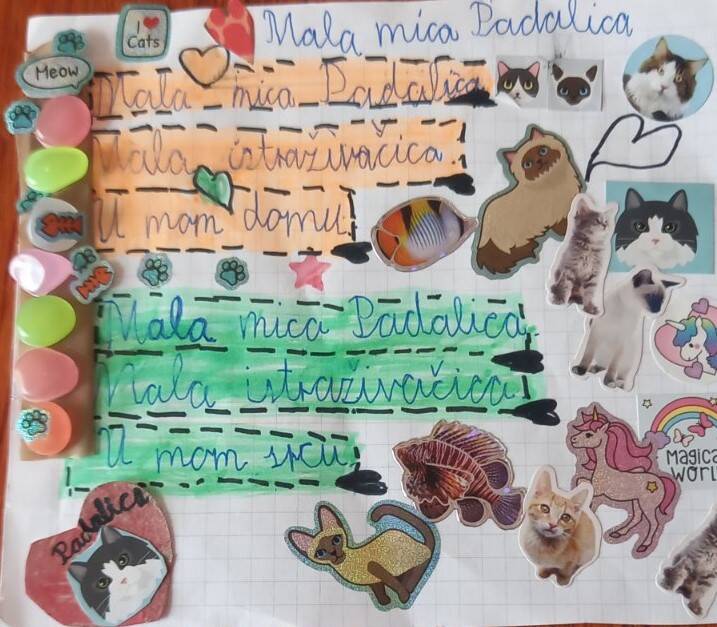 I ♥ Cats
Mala mica Padalica
Meow
Mala mica Padalica
Mala istraživačica
U mom domu.
Mala mica Padalica,
Mala istraživačica
U mom srcu.
MAGICAL
WORL
Padalica